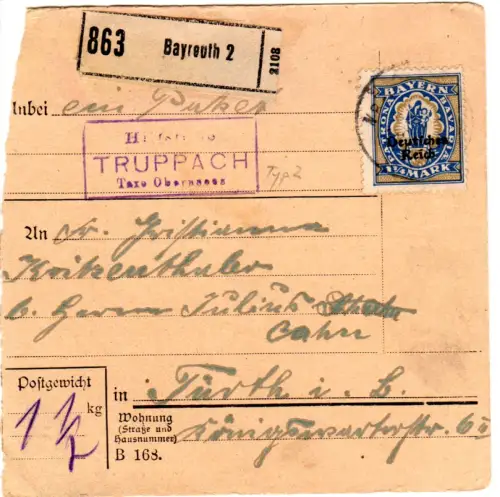 863 Bayreuth 2 2108
Inbei ein Paket
TRUPPACH
Taxe Obernsees
Typ 2
BAYERN
PATRONA BAVARIAE
Deutsches
Reich
1¼ MARK
An Fr. Christianna
Kritzenthaler
b. Herrn Julius
Cahn
Postgewicht
1½ kg
in Fürth i. B.
Wohnung
(Straße und
Hausnummer)
Königswarterstr. 6
B 168.